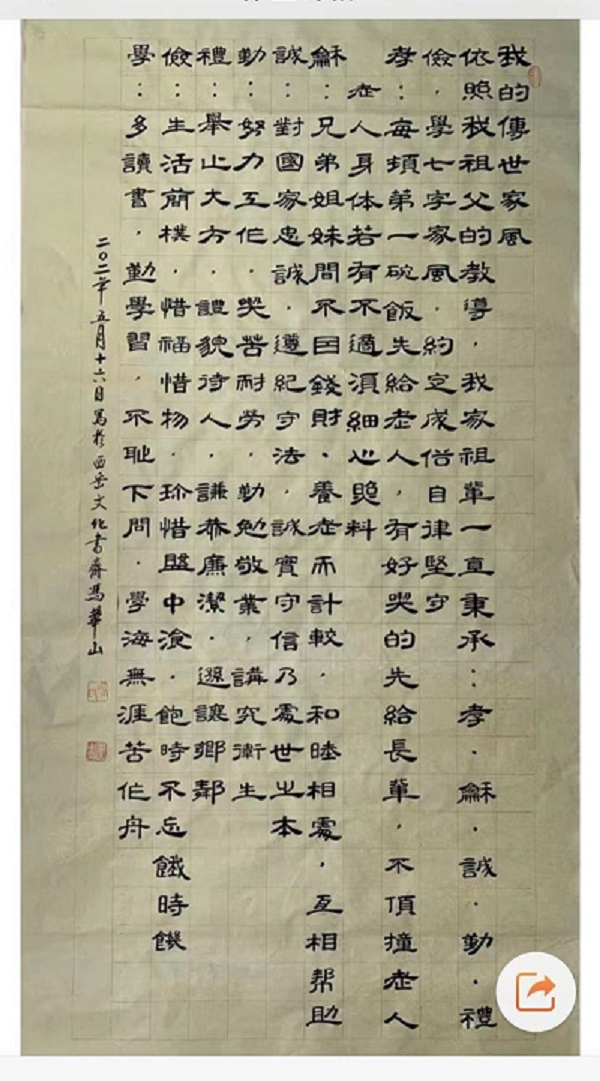 我的傳世家風
依照我祖父的教導，我家祖輩一直秉承：孝．龢．誠．勤．禮
儉，學七字家風．約定成俗自律堅守
孝：每頓第一碗飯先給老人，有好吃的先給長輩，不頂撞老人
老人身体若有不適須細心照料
龢：兄弟姐妹間不因錢財．養老而計較．和睦相處，互相帮助
誠：對國家忠誠．遵紀守法，誠實守信乃處世之本
勤：努力工作．吃苦耐勞．勤勉敬業，講究衛生
禮：舉止大方．禮貌待人．謙恭廉潔．遜讓鄉鄰
儉：生活簡樸．惜福惜物．珍惜盤中飡．飽時不忘餓時饑
學：多讀書．勤學習，不耻下問．學海無涯苦作舟
二〇二年五月十六日寫於西岳文化書齋馮華山